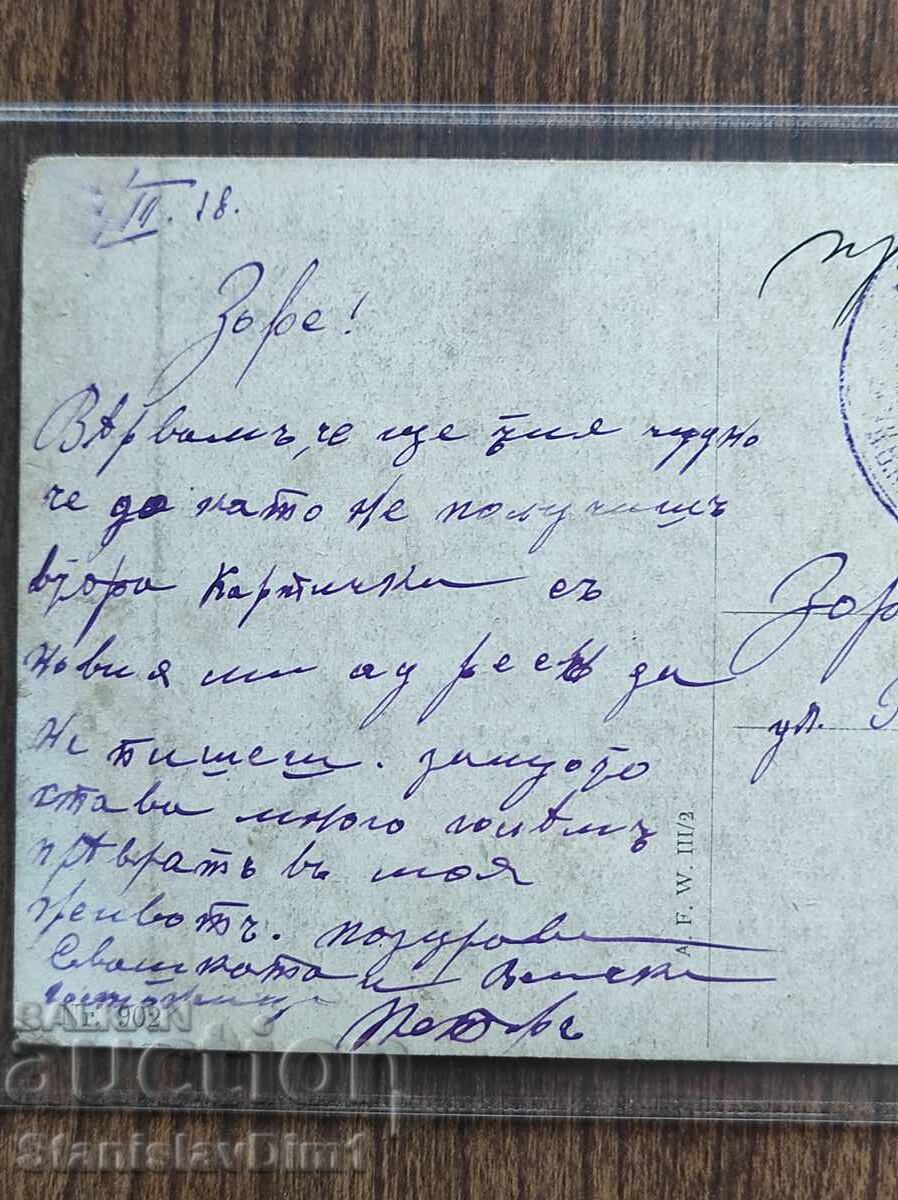 III. 18.
Зоре!
Вѣрвамъ, че ще чудно
че до като не получишъ
втора картичка съ
новия ми адресъ да
не пишеш. защото
става много голѣмъ
прѣвратъ въ моя
животъ. поздрави
и всички
Петъръ
Nr. 902
A. F. W. III/2
ул.
BALKAN
auction
StanislavDim1